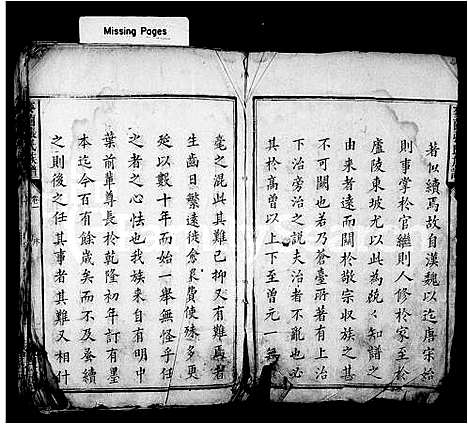 Missing Pages
著似續焉故自漢魏以迄唐宋始
則事掌於官繼則人修於家至於
廬陵東坡尤以此為統知譜之
由來者遠而關於敬宗收族之甚
不可闕也若乃蒼臺所著有上治
下治旁治之說夫治者不亂也必
其於高曾以上下至曾元一無
毫之混此其難已抑又有難焉者
生齒日繁遠徙愈艮費使殊多更
延以數十年而始一舉無怪乎任
之者之心怯也我族来自有明中
葉前輩尊長於乾隆初年訂有墨
本迄今百有餘歲矣而不及蚤續
之則後之任其事者其難又相什